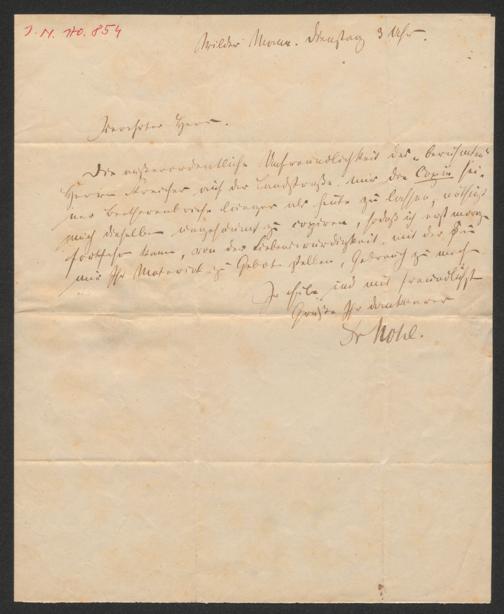 J. N. No. 854
Wilder Mann. Dienstag 3 Uhr.
Verehrter Herr.
Die außerordentliche Unfreundlichkeit des „berühmten“
Herrn Streicher auf der Landstraße, mir die Copie sei-
ner Beethovenbriefe länger als heute zu lassen, nöthigt
mich dieselben zu copiren, sodaß ich erst morgen
kann, von der Liebenswürdigkeit, mit der Sie
mir Ihr Material zu Gebote stellen, Gebrauch zu machen.
In Eile und mit freundlichst
Grüßen Ihr dankbarer
Dr Nohl.